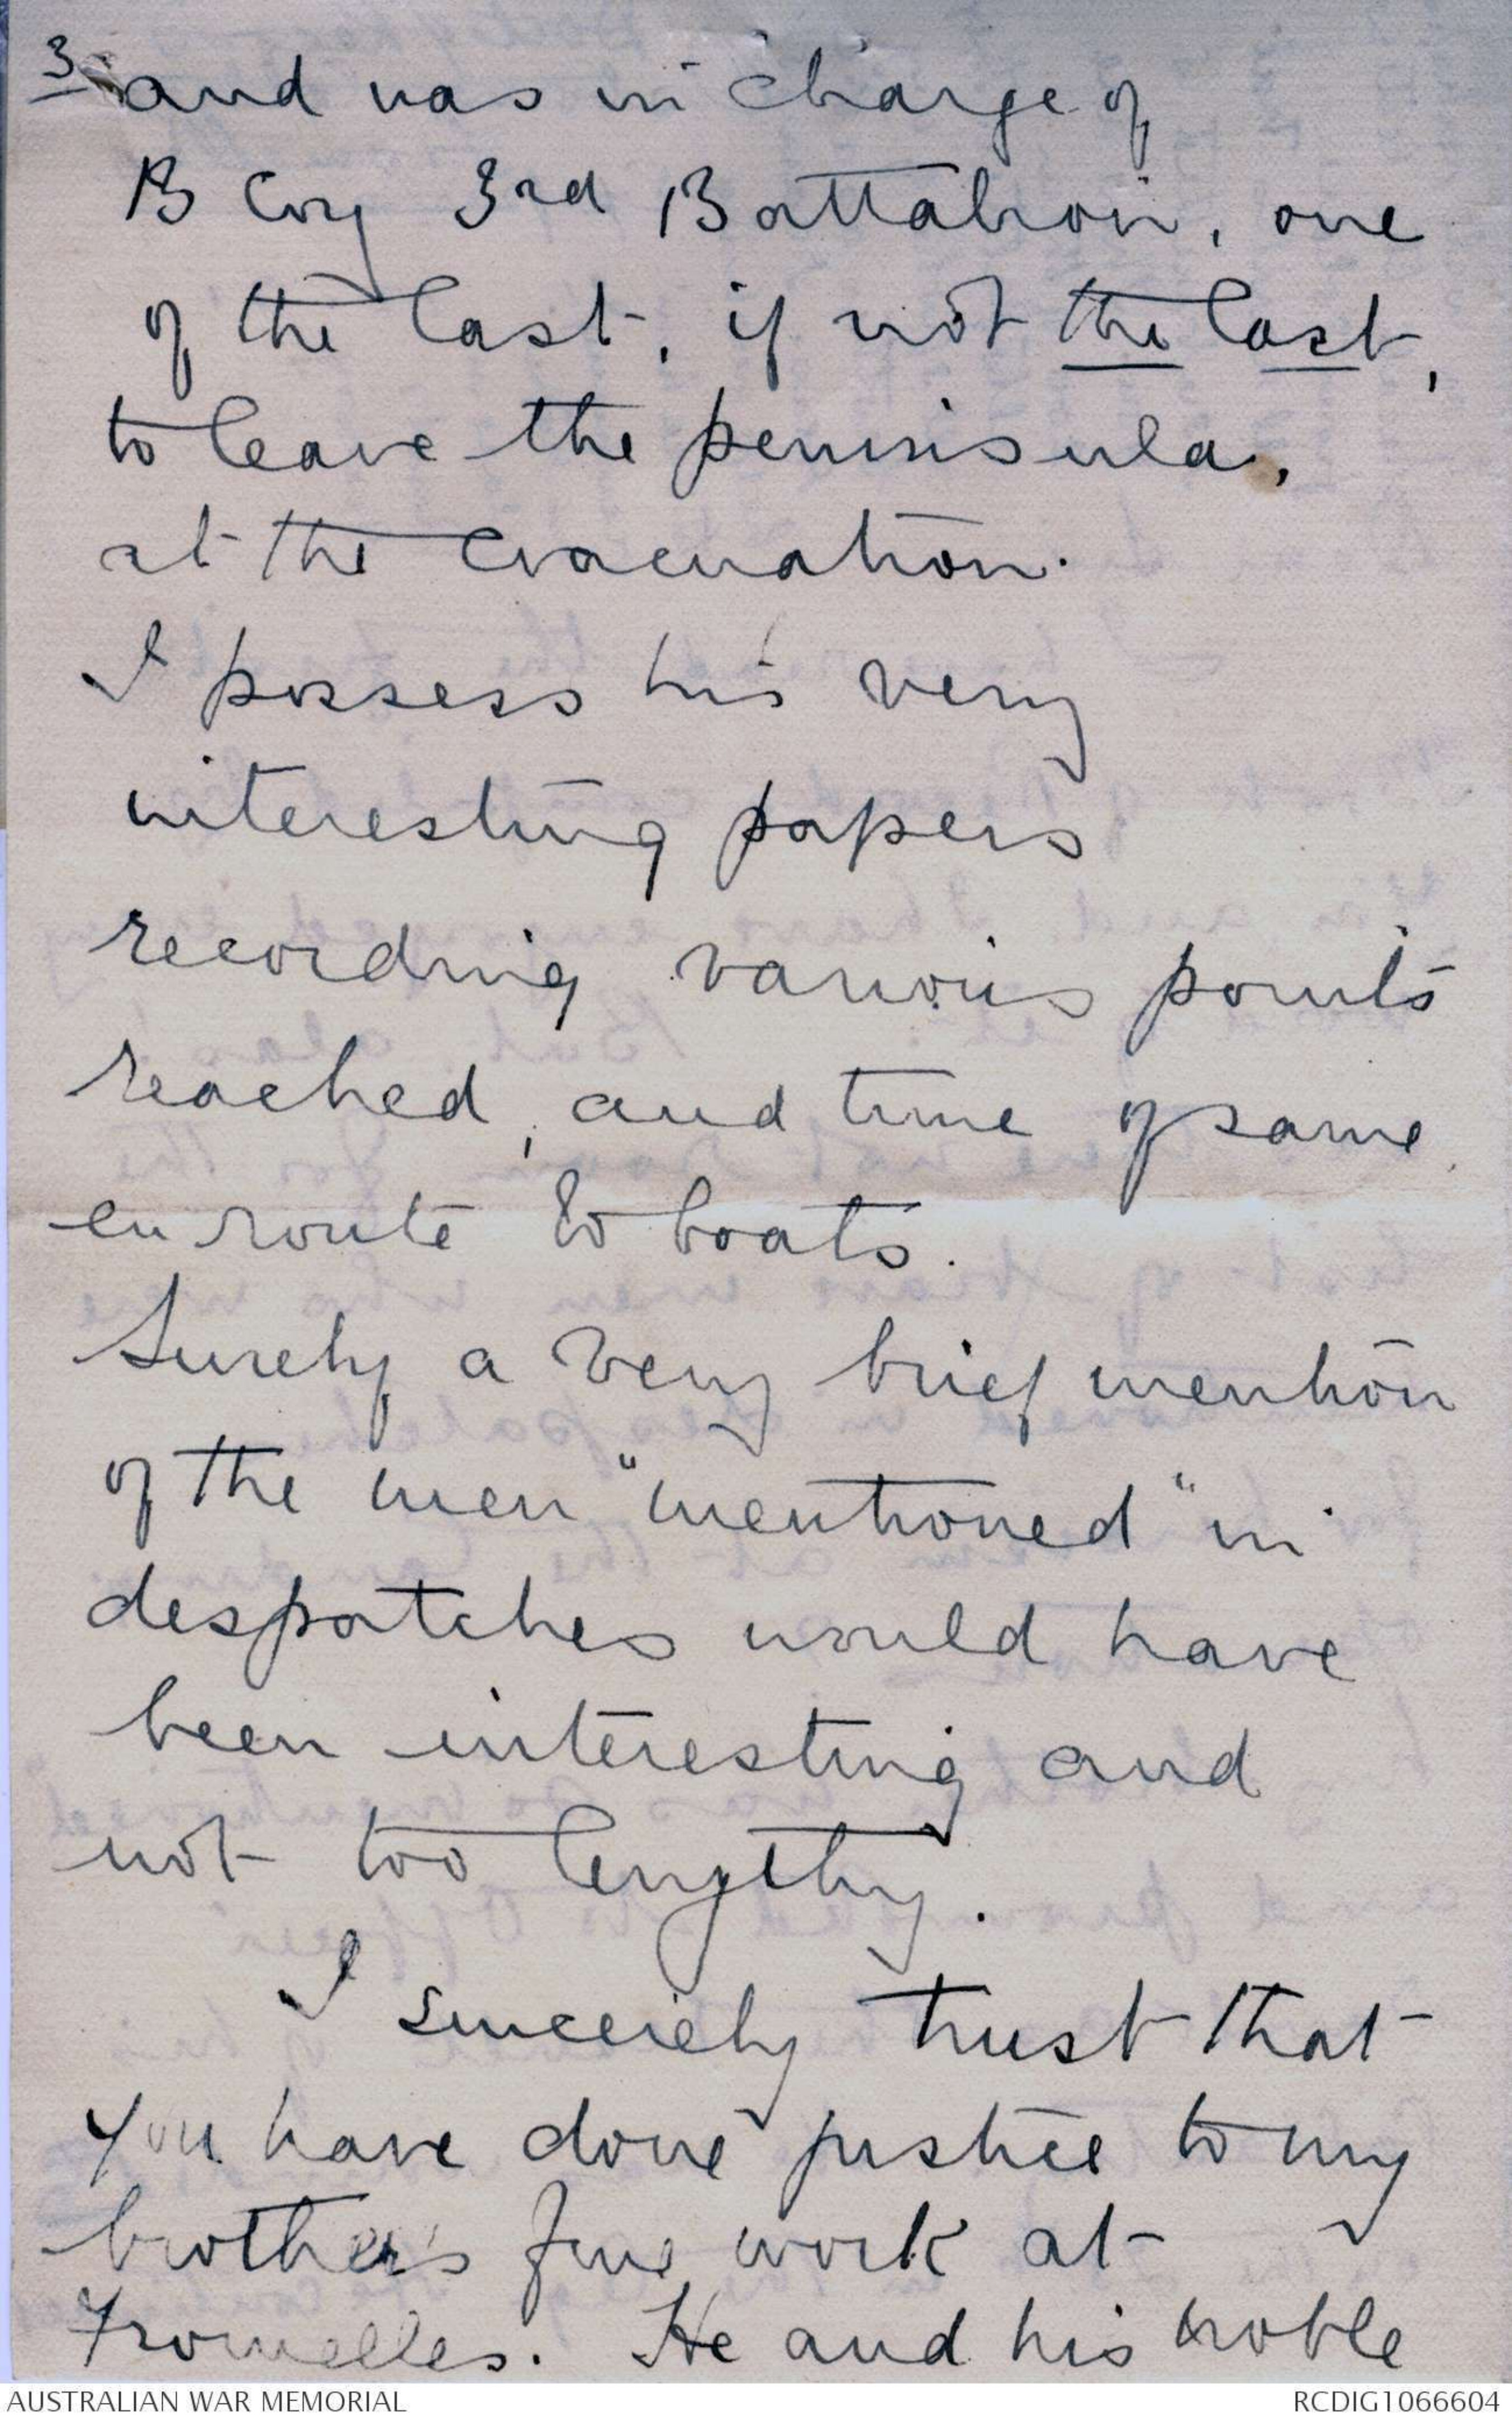 3 and was in charge of
B Coy 3rd Battalion, one
of the last, if not the last,
to leave the peninsula,
at the evacuation.
I possess his very
interesting papers
recording various points
reached, and time of same
en route to boats.
Surely a very brief mention
of the men "mentioned" in
despatches would have
been interesting and
not too lengthy.
I sincerely trust that
you have done justice to my
brother's fine work at
Fromelles. He and his noble
AUSTRALIAN WAR MEMORIAL
RCDIG1066604